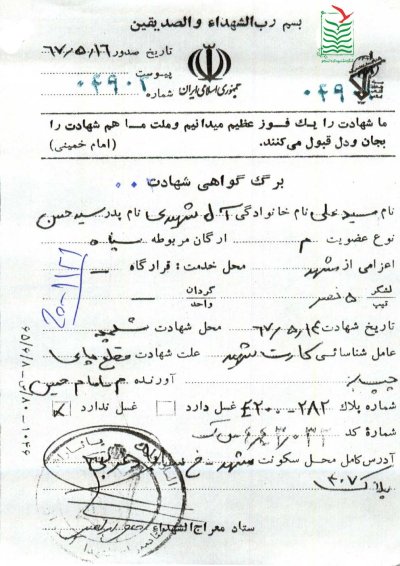 بسم رب‌الشهداء و الصدیقین
تاریخ صدور ۶۷/۵/۱۶
پیوست
شماره ۰۴۹۰۲
۰۴۹
جمهوری اسلامی ایران
ما شهادت را یك فوز عظیم میدانیم وملت مـا هم شهادت را
بجان ودل قبول می‌کنند. (امام خمینی)
برگ گواهی شهادت
نام سیدعلی نام خانوادگی آل شهیدی نام پدر سیدحسن
نوع عضویت م ارگان مربوطه سپاه
اعزامی از مشهد محل خدمت: قرارگاه
لشگر
تیپ ۵ نصر گردان
واحد
تاریخ شهادت ۶۷/۵/۱۴ محل شهادت
عامل شناسائی کارت شهید علت شهادت قطع پای
چپ آورنده م امام حسین
شماره پلاك ۲۸۲-۴۲۰۰ غسل دارد غسل ندارد
شمارهٔ کد
آدرس کامل محـل سکونت مشهد - خ
پلاک ۳۰۷
ستاد معراج الشهداء